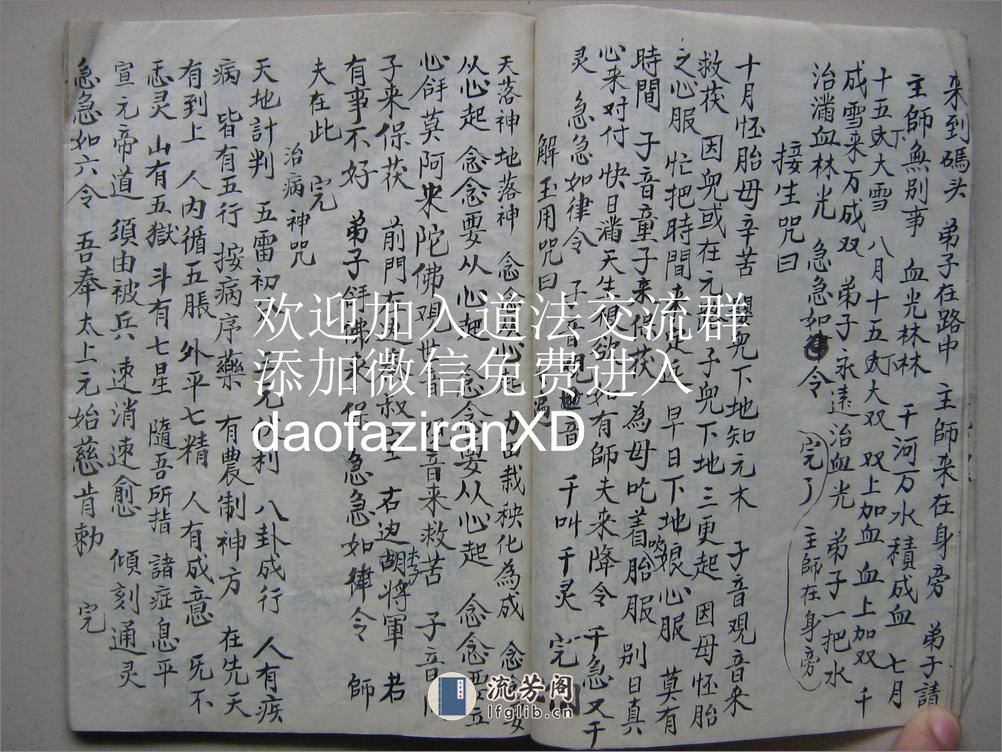 来到碼头 弟子在路中 主師来在身旁 弟子請
主師無別事 血光林林 千河万水積成血 七月
十五下大雪 八月十五下大双 双上加血 血上加双 千
成雪来万成双 弟子永遠治血光 弟子一把水
治滿血林光 急急如律令 完了 主師在身旁
接生咒曰
十月怪胎母辛苦 嬰兒下地知元木 子音观音来
救茯 因兒或在元 子兒下地三更起 因母怪胎
之心服 忙把時間 早日下地娘心服 莫有
時間 子音童子来保茯 為母吃着胎服 别日真
心来对付 快日滿天生領欲 如有師夫来降令 千急又千
灵 急急如律令 子音观世音 千叫千灵 完
解玉用咒曰
天落神地落神 念念 栽秧化為成 念念要
从心起 念念要从心起 念念要从心起 念念要
心 莫阿来陀佛观世音 音来救苦 子音
子来保茯 前門在 叔王 右边胡李将軍 若
有事不好 弟子拜佛来保 急急如律令 師
夫在此 完
治病神咒
天地計判 五雷初 八卦成行 人有疾
病 皆有五行 按病序藥 有農制神方 在先天
有到上 人内循五脹 外平七精 人有成意 旡不
灵 山有五獄 斗有七星 隨吾所指 諸症息平
宣元帝道 須由被兵 速消速愈 傾刻通灵
急急如六令 吾奉太上元始慈肯勅 完
欢迎加入道法交流群
添加微信免费进入
daofaziranXD
流芳阁
lfglib.cn